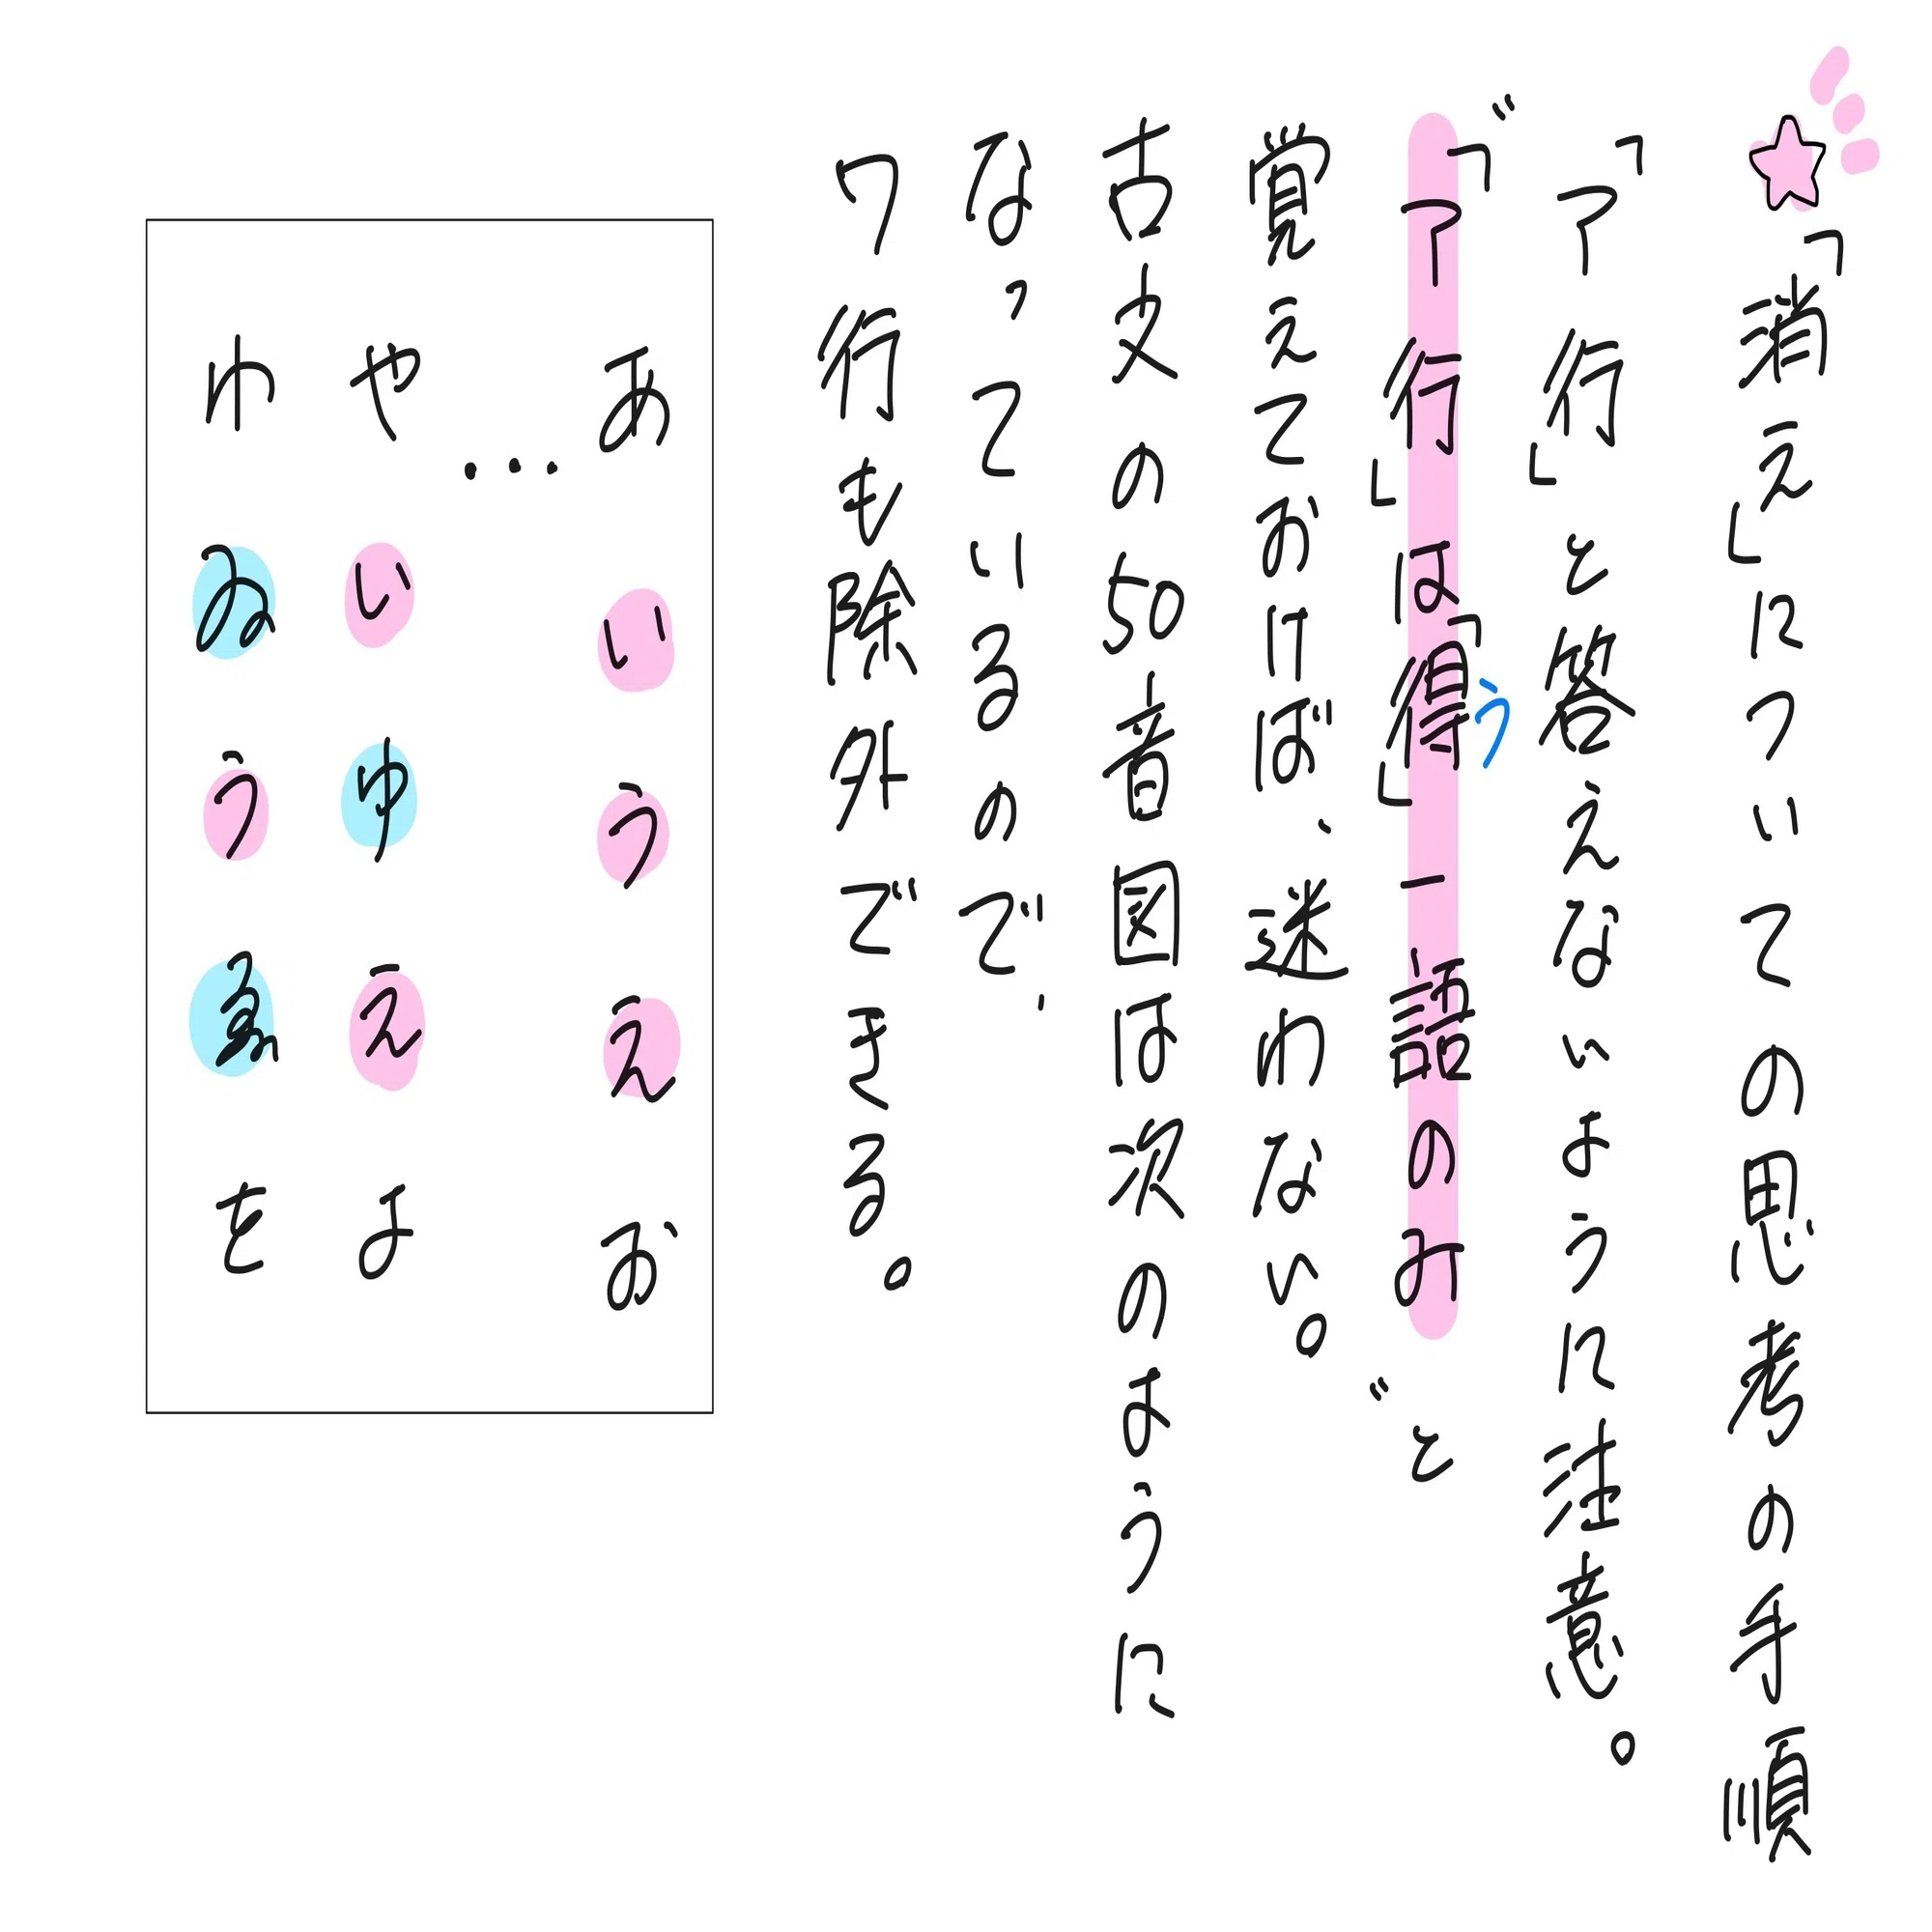 ☆「消え」についての思考の手順
「ア行」と答えないように注意。
〝「ア行」は「得」一語のみ〟と
う
覚えておけば、迷わない。
古文の50音図は次のように
なっているので、
ワ行も除外できる。
あいうえお
…
やいゆえよ
わゐうゑを